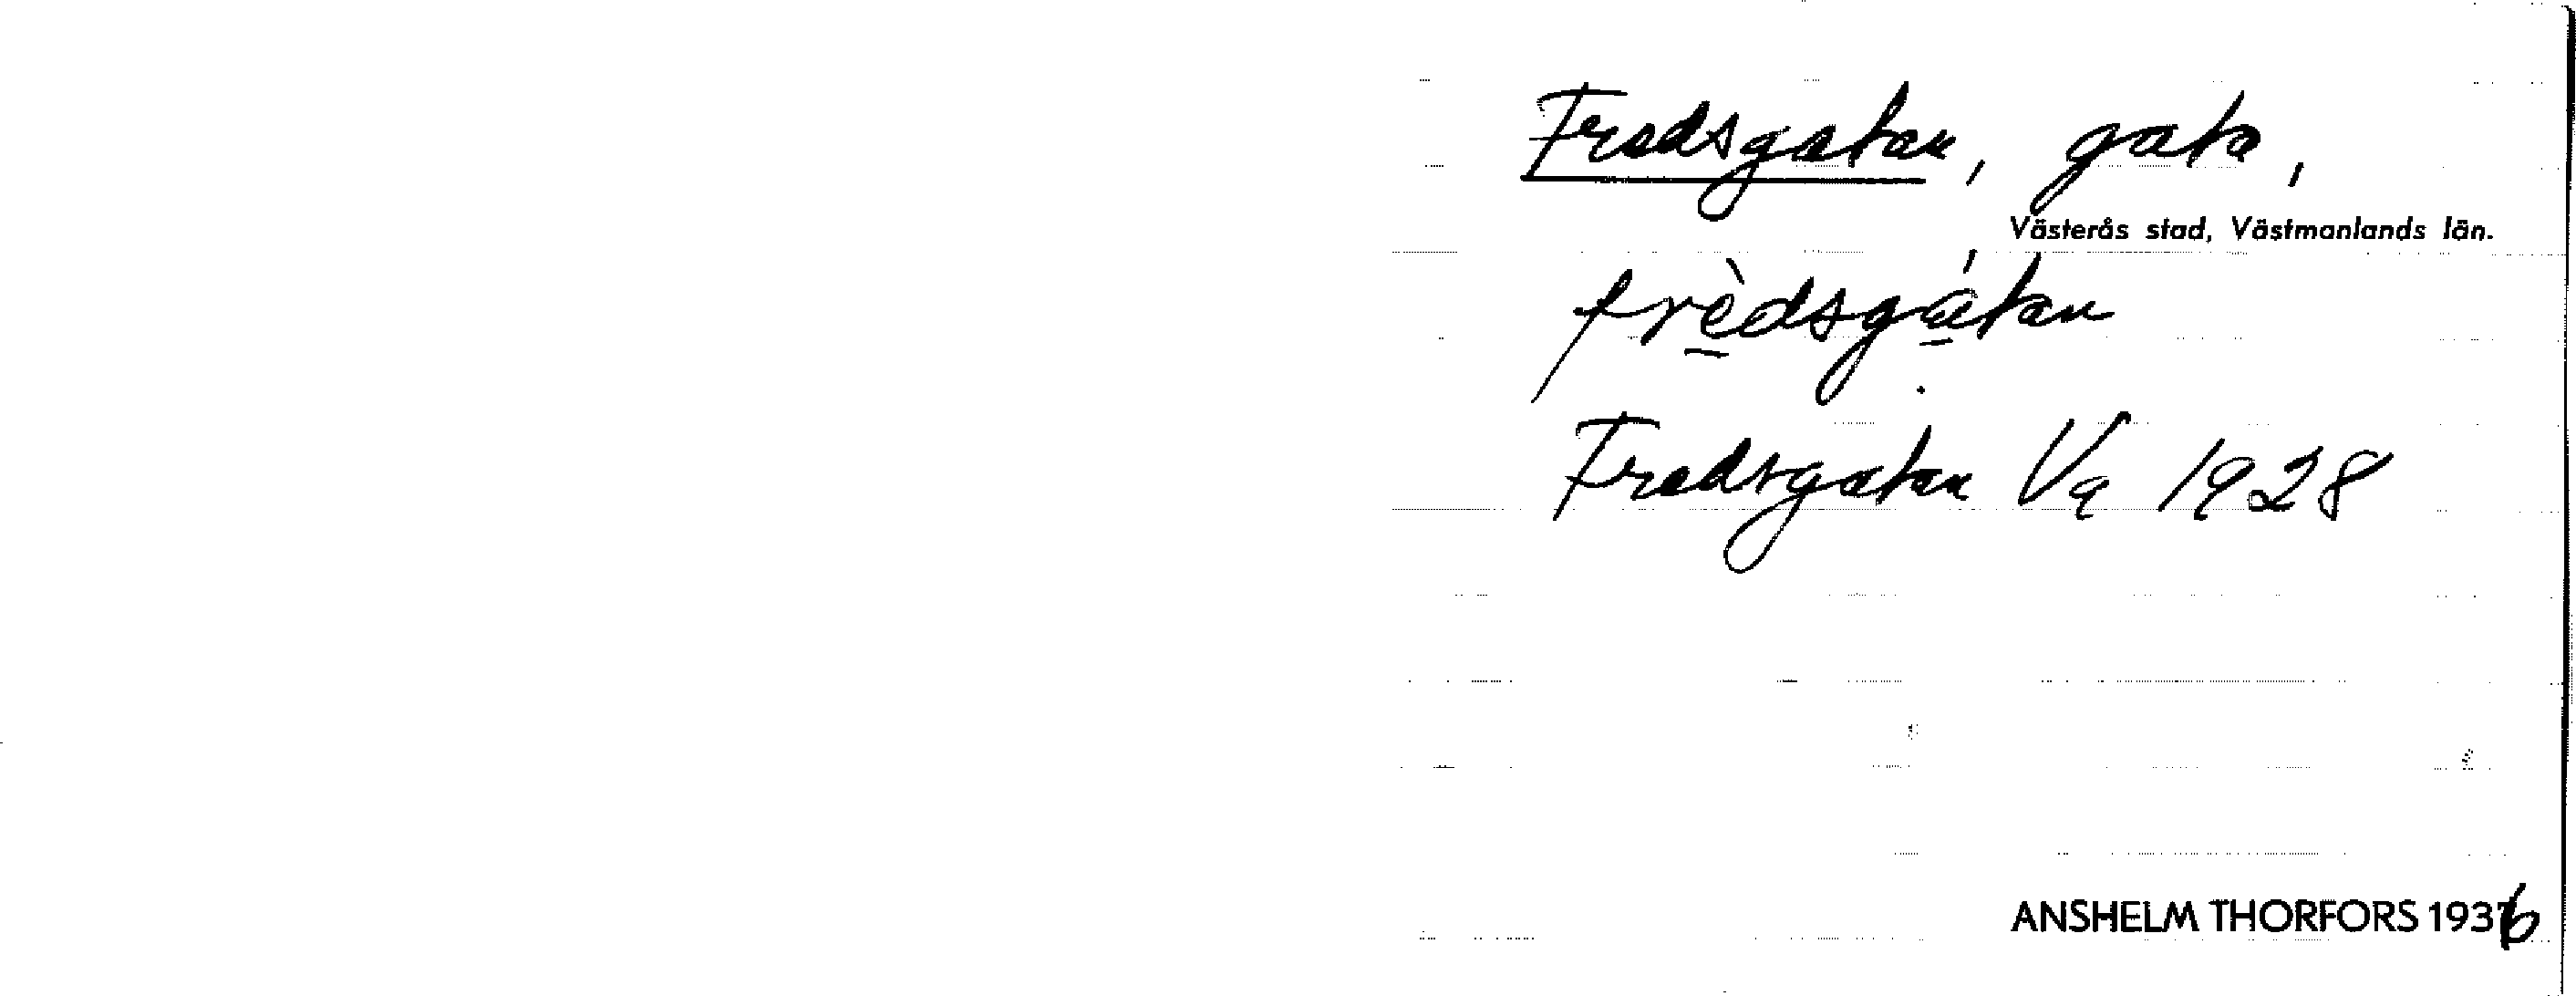 Fredsgatan, gata,
Västerås stad, Västmanlands län.
frèdsgátan
Fredsgatan Va 1928
ANSHELM THORFORS 1936